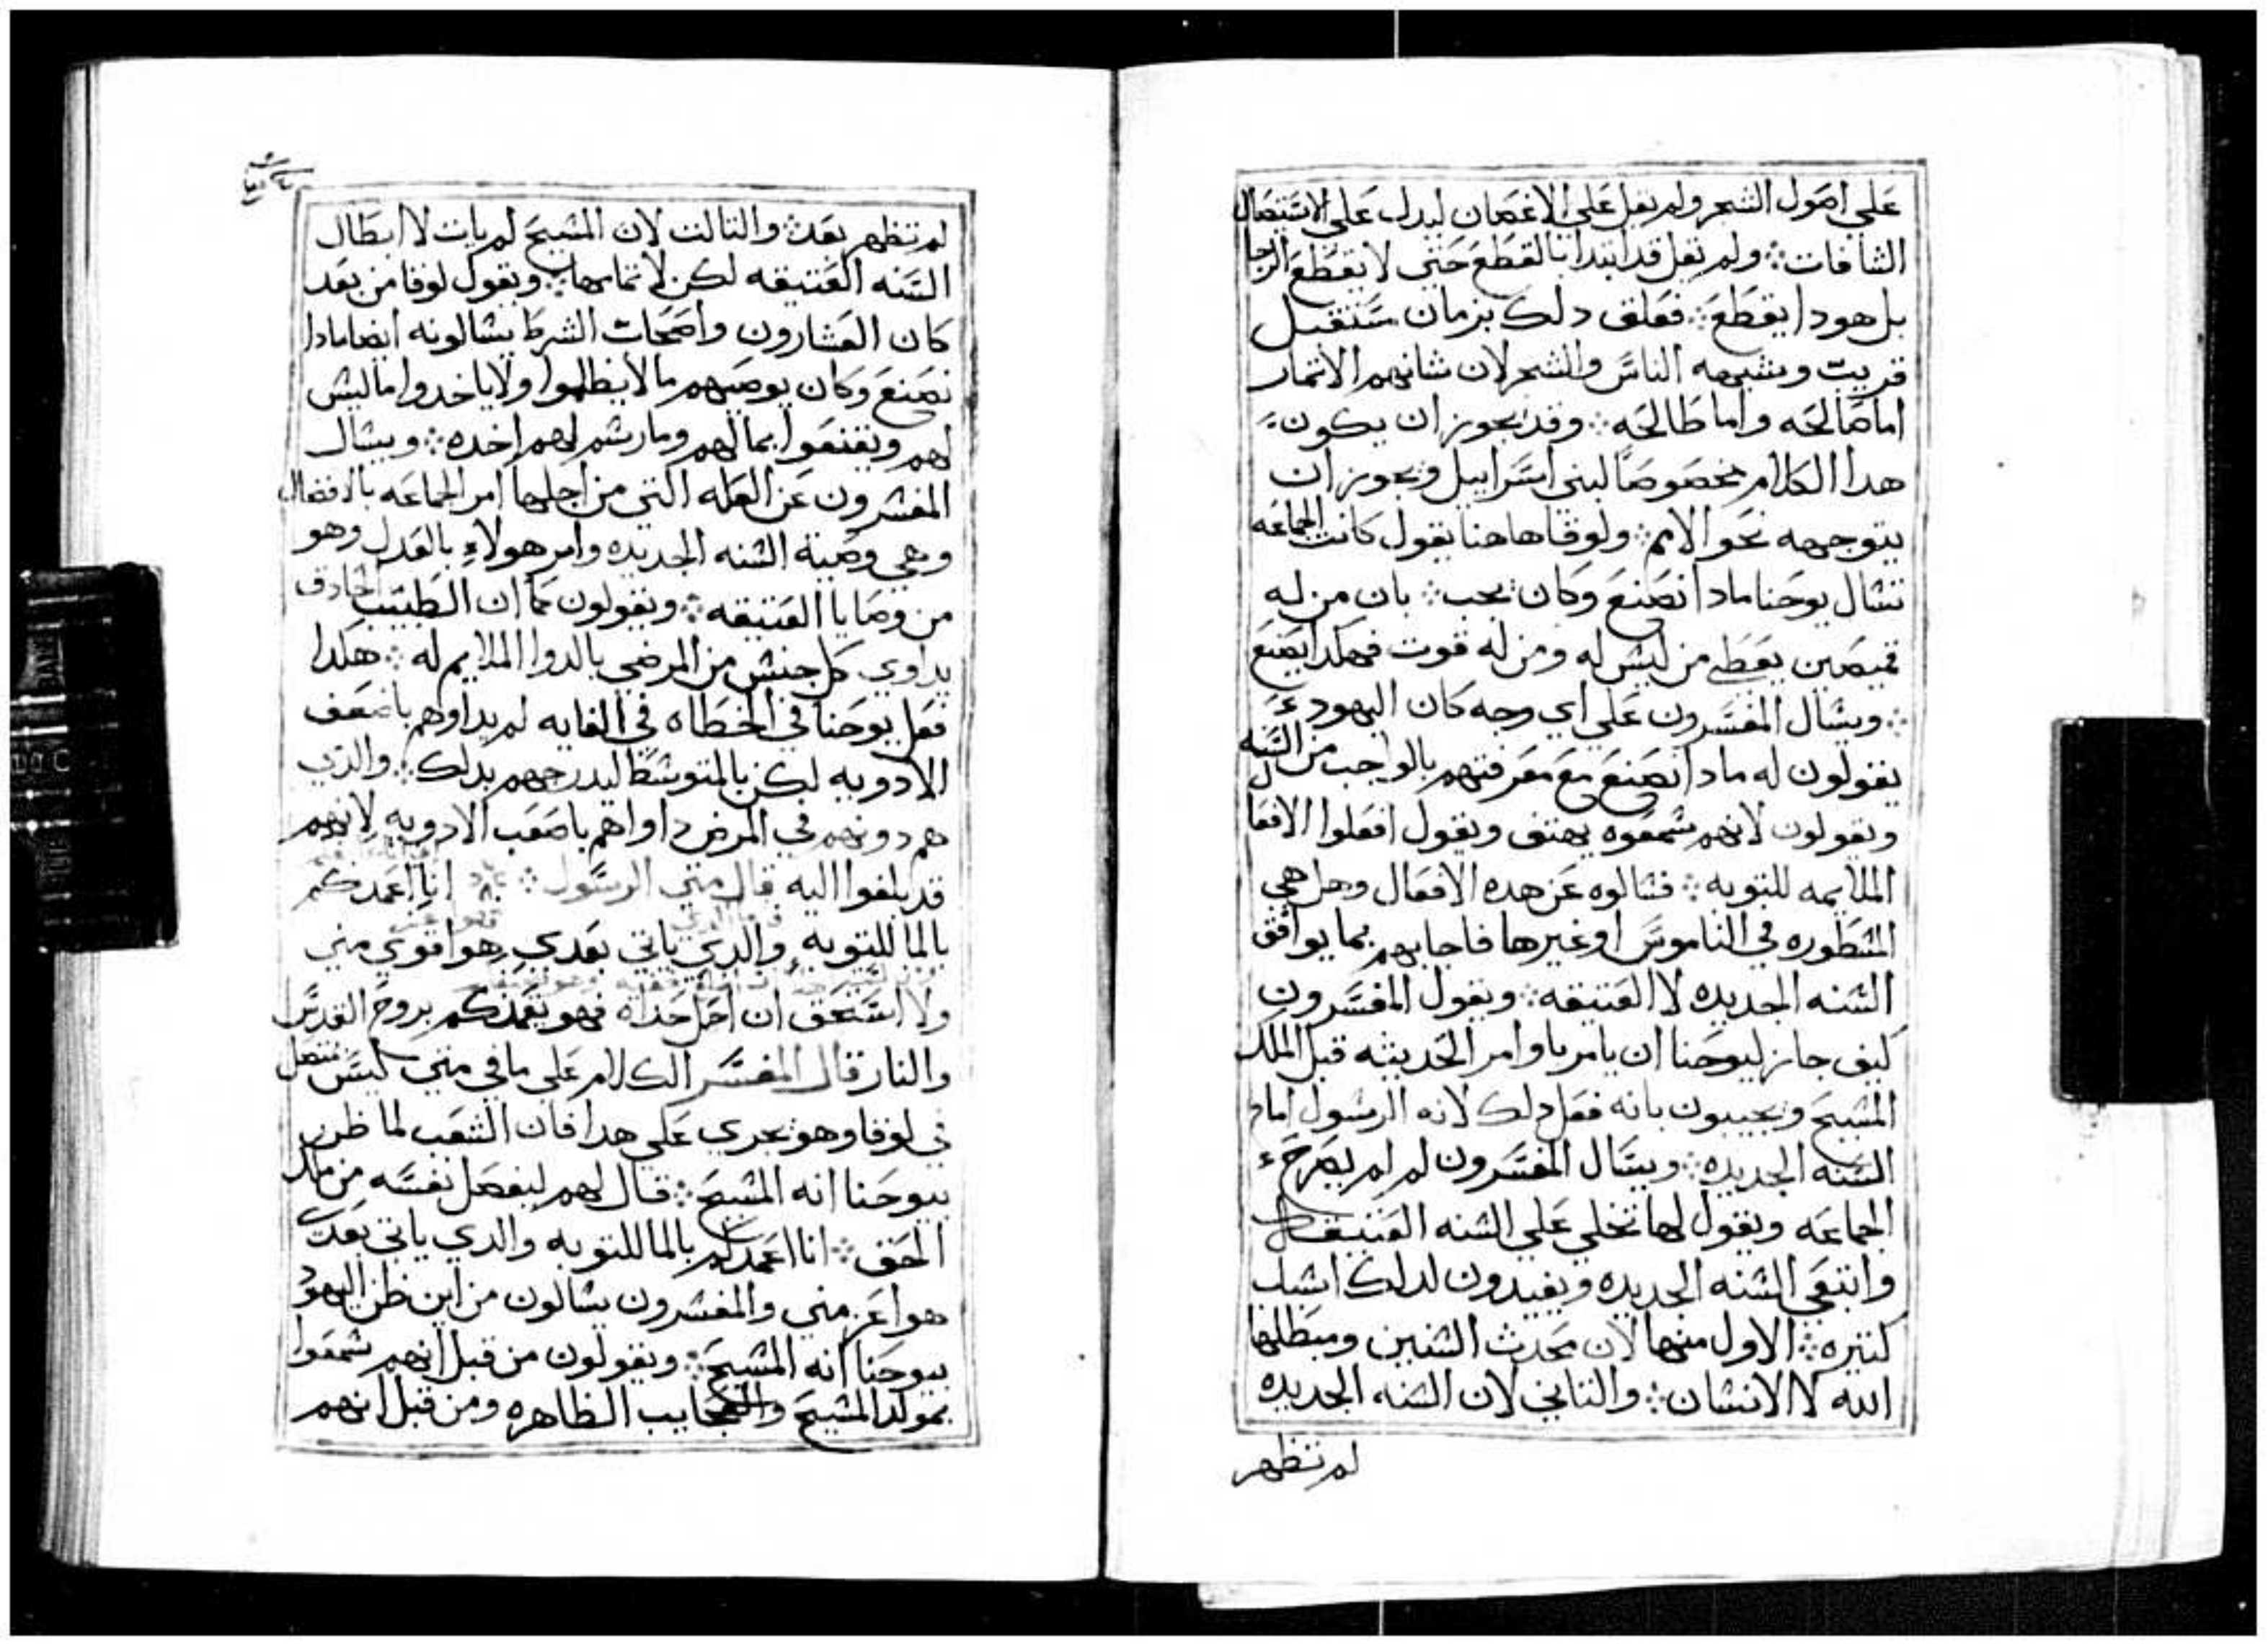 علي اصول الشجر ولم يقل علي الاغصان ليدل علي الاستيصال
الشافات ولم يقل قد ابتدا بالقطع حتي لا يقطع الرجا
بل هودا يقطع فعلق دلك بزمان ستقبل
قريب ويشبه الناس والشجر لان شانهم الاثمار
اما صالحه واما طالحه وقد يجوز ان يكون
هدا الكلام مخصوصا لبني اسراييل ويجوز ان
يتوجهه نحو الامم ولوقا هاهنا يقول كانت الجماعه
تسال يوحنا مادا نصنع وكان يجب بان من له
قميصين يعطي من ليس له ومن له قوت فهكدا يصنع
ويسال المفسرون علي اي وجه كان اليهود
يقولون له مادا نصنع مع معرفتهم بالواجب من السنه
ويقولون لانهم سمعوه يهتف ويقول افعلوا الافعال
الملايمه للتوبه فسالوه عن هده الافعال وهل هي
المسطوره في الناموس او غيرها فاجابهم بما يوافق
السنه الجديده لا العتيقه ويقول المفسرون
كيف جاز ليوحنا ان يامر باوامر الحديثه قبل الملك
المسيح ويجيبون بانه فعل دلك لانه الرسول امام
السنه الجديده ويسال المفسرون لم لم يصرح
الجماعه ويقول لها تخلي علي السنه العتيقه
وابتغي السنه الجديده ويفيدون لدلك اسباب
كثيره الاول منها لان محدث السنين ومبطلها
الله لا الانسان والثاني لان السنه الجديده
لم تظهر
لم تظهر بعد والثالث لان المسيح لم يات لا ابطال
السنه العتيقه لكن لاتمامها ويقول لوقا من بعد
كان العشارون واصحاب الشرط يسالونه ايضا مادا
نصنع وكان يوصيهم ما لا يظلموا ولا ياخدوا ما ليس
لهم ويقنعوا بمالهم وما رسم لهم اخده ويسال
المفسرون عن العله التي من اجلها امر الجماعه بالافضال
وهي وصية السنه الجديده وامر هولاء بالعدل وهو
من وصايا العتيقه ويقولون كما ان الطبيب الحادق
يداوي كل جنس من المرضي بالدوا الملايم له هكدا
فعل يوحنا في الخطاه في الغايه لم يداوهم باضعف
الادويه لكن بالمتوسط ليدرجهم بدلك والدي
هم دونهم في المرض داواهم باصعب الادويه لانهم
قد بلغوا اليه قال متي الرسول انا اعمدكم
بالما للتوبه والدي ياتي بعدي هو اقوي مني
ولا استحق ان احل حداه فهو يعمدكم بروح القدس
والنار قال المفسر الكلام علي ما في متي ليس متصل
في لوقا وهو يجري علي هدا فان الشعب لما ظن
بيوحنا انه المسيح قال لهم ليفصل نفسه من ملك
الحق انا اعمدكم بالما للتوبه والدي ياتي بعدي
هو اعز مني والمفسرون يسالون من اين ظن اليهود
بيوحنا انه المسيح ويقولون من قبل انهم سمعوا
بمولد المسيح والعجايب الظاهره ومن قبل انهم